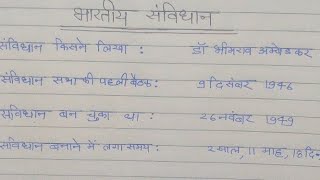 भारतीय संविधान
संविधान किसने लिखा : डॉ भीमराव अम्बेडकर
संविधान सभा की पहली बैठक: 9 दिसंबर 1946
संविधान बन चुका था : 26 नवंबर 1949
संविधान बनाने में लगा समय: 2 साल, 11 माह, 18 दिन